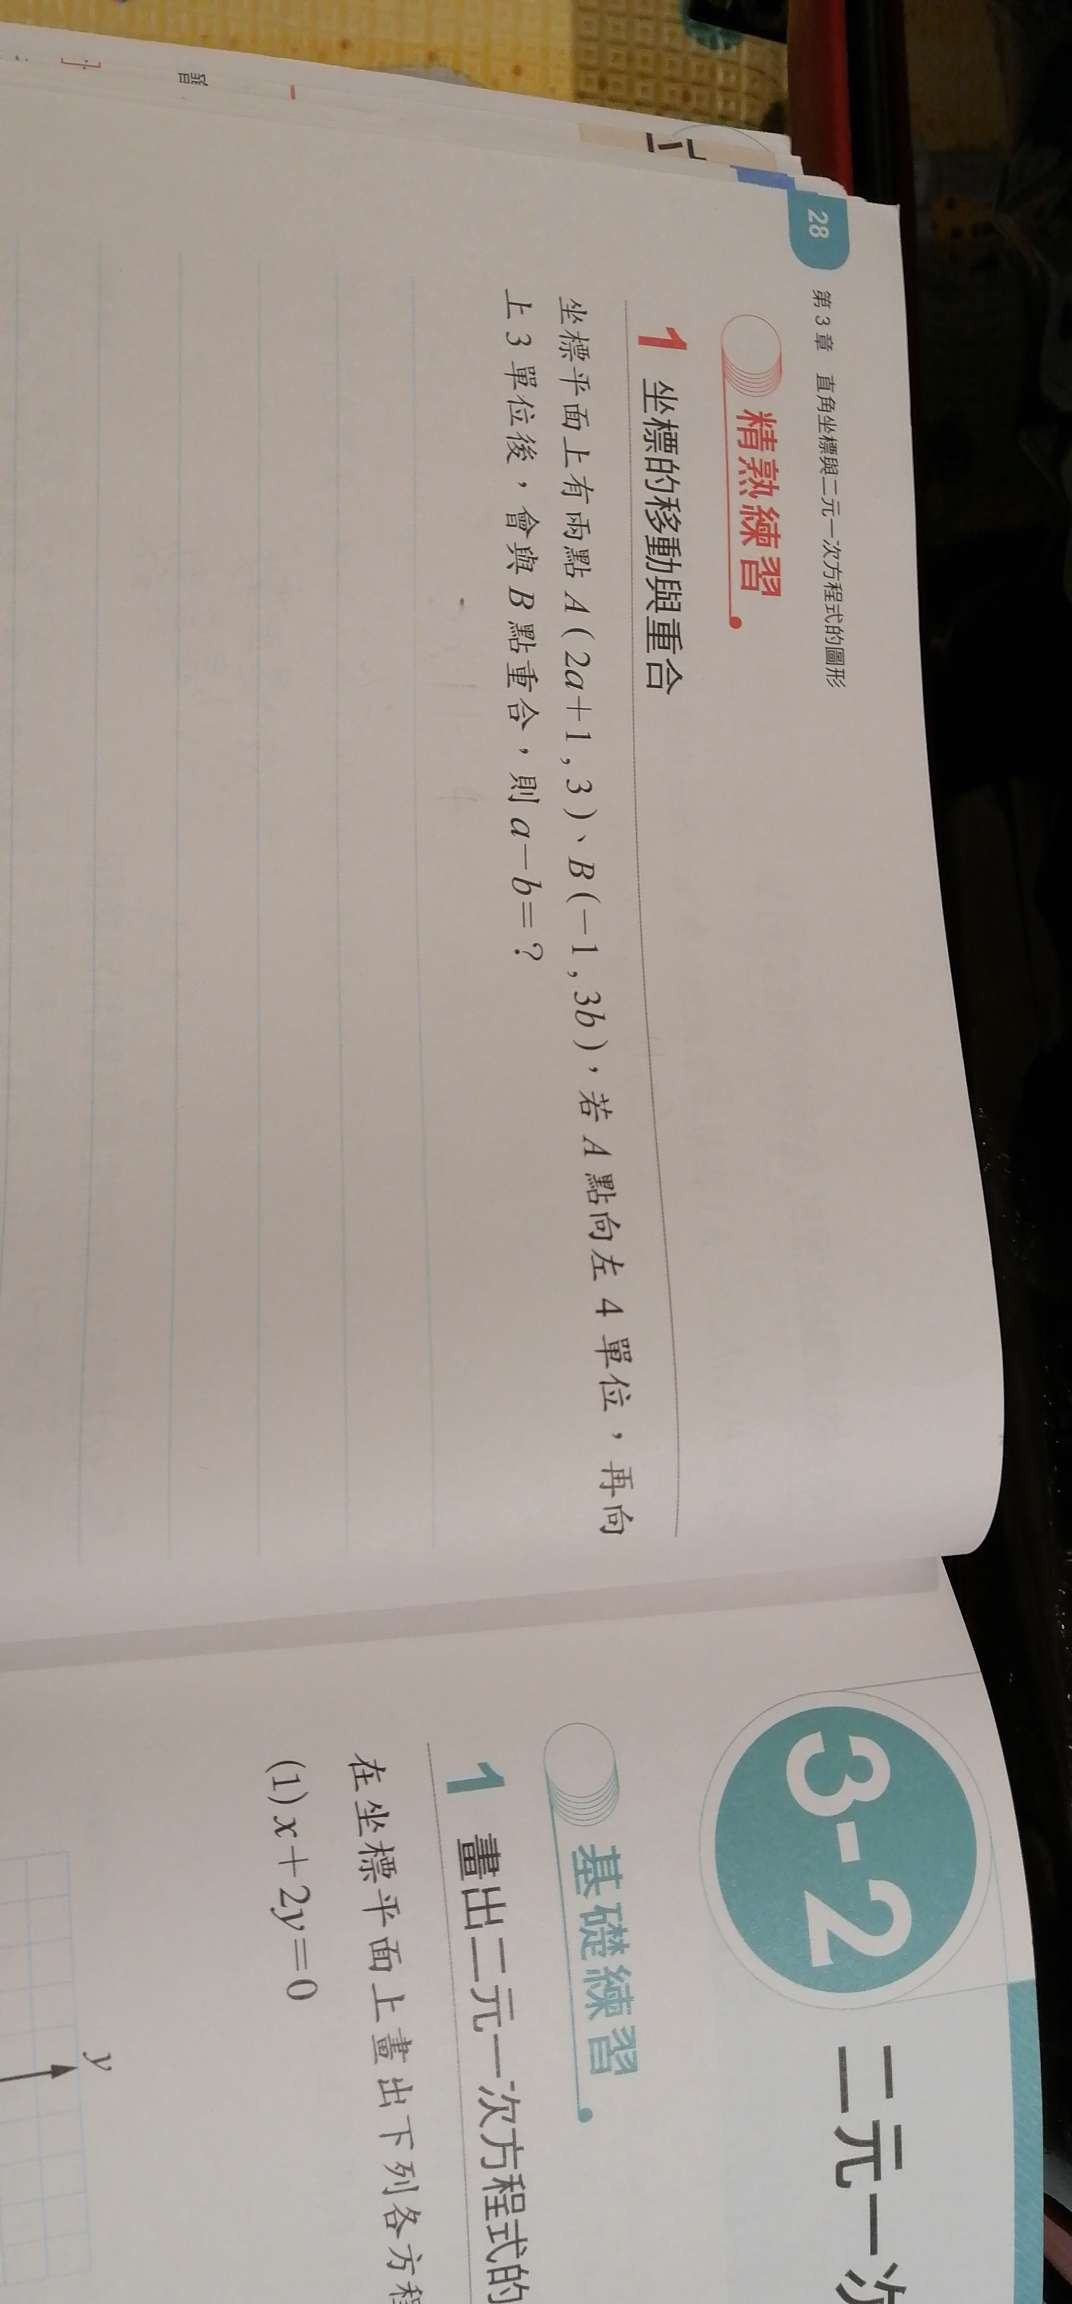 28
第3章 直角坐標與二元一次方程式的圖形
精熟練習
1 坐標的移動與重合
坐標平面上有兩點A(2a+1,3)、B(-1,3b),若A點向左4單位,再向
上3單位後,會與B點重合,則a-b=?
3-2 二元一次
基礎練習
1 畫出二元一次方程式的
在坐標平面上畫出下列各方程
(1)x+2y=0
y